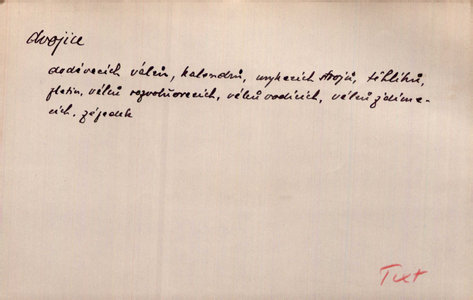 dvojice
dodávacích válců, kalandrů, mykacích strojů, těhlíků,
platin, válců rozvolňovacích, válců vodících, válců ždíma-
cích, zájedek
Text